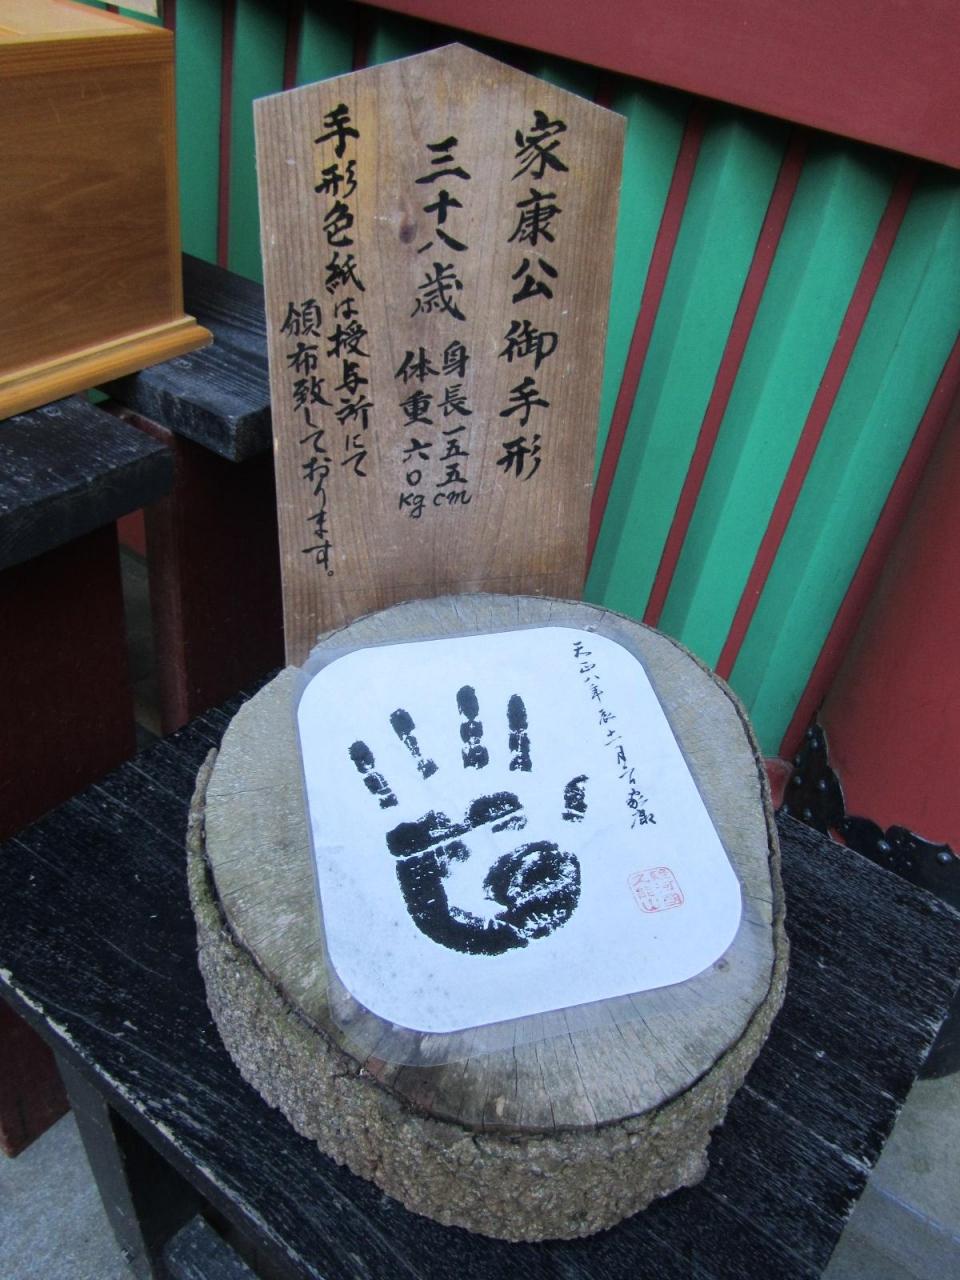 家康公御手形
三十八歳
身長一五五cm
体重六〇kg
手形色紙は授与所にて
頒布致しております。
天正八年辰十一月
家康
久能山